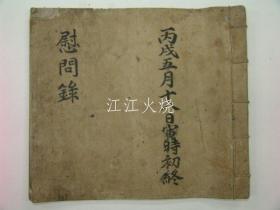 丙戌五月十八日寅時初終
慰問錄
江江火烧